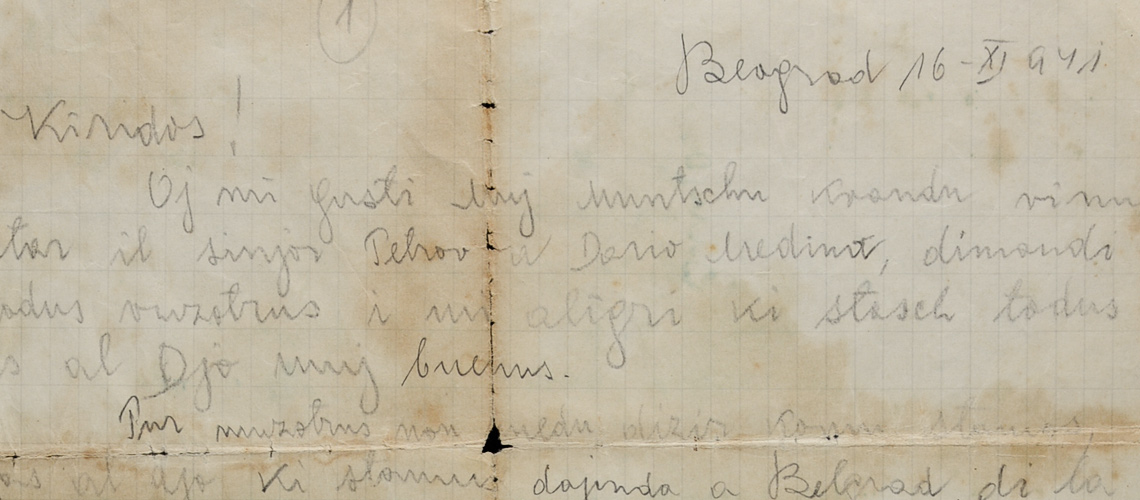 1
Beograd 16-XI 941.
Kiridos!
Oj mi gusti muj muntschu kvandu vinu
tar il sinjor Petrov a Dario Medina, dimandi
odus vuzotrus i mi aligri ki stasch todus
s al Djo muj buenus.
Pur muzotrus non puedu dizir komu stamus,
as al Djo ki stamus dajinda a Belgrad di la